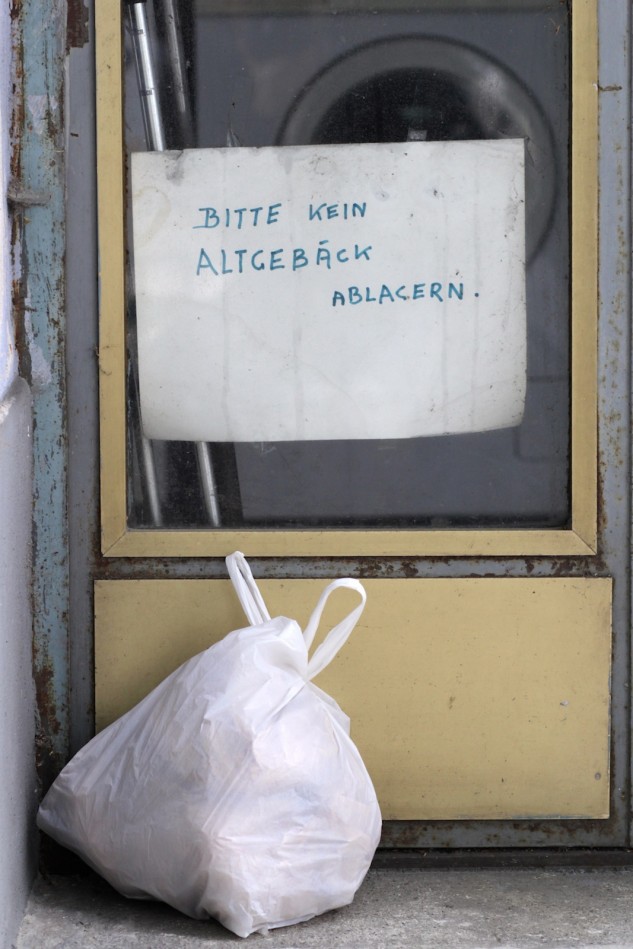 BITTE KEIN
ALTGEBÄCK
ABLAGERN.